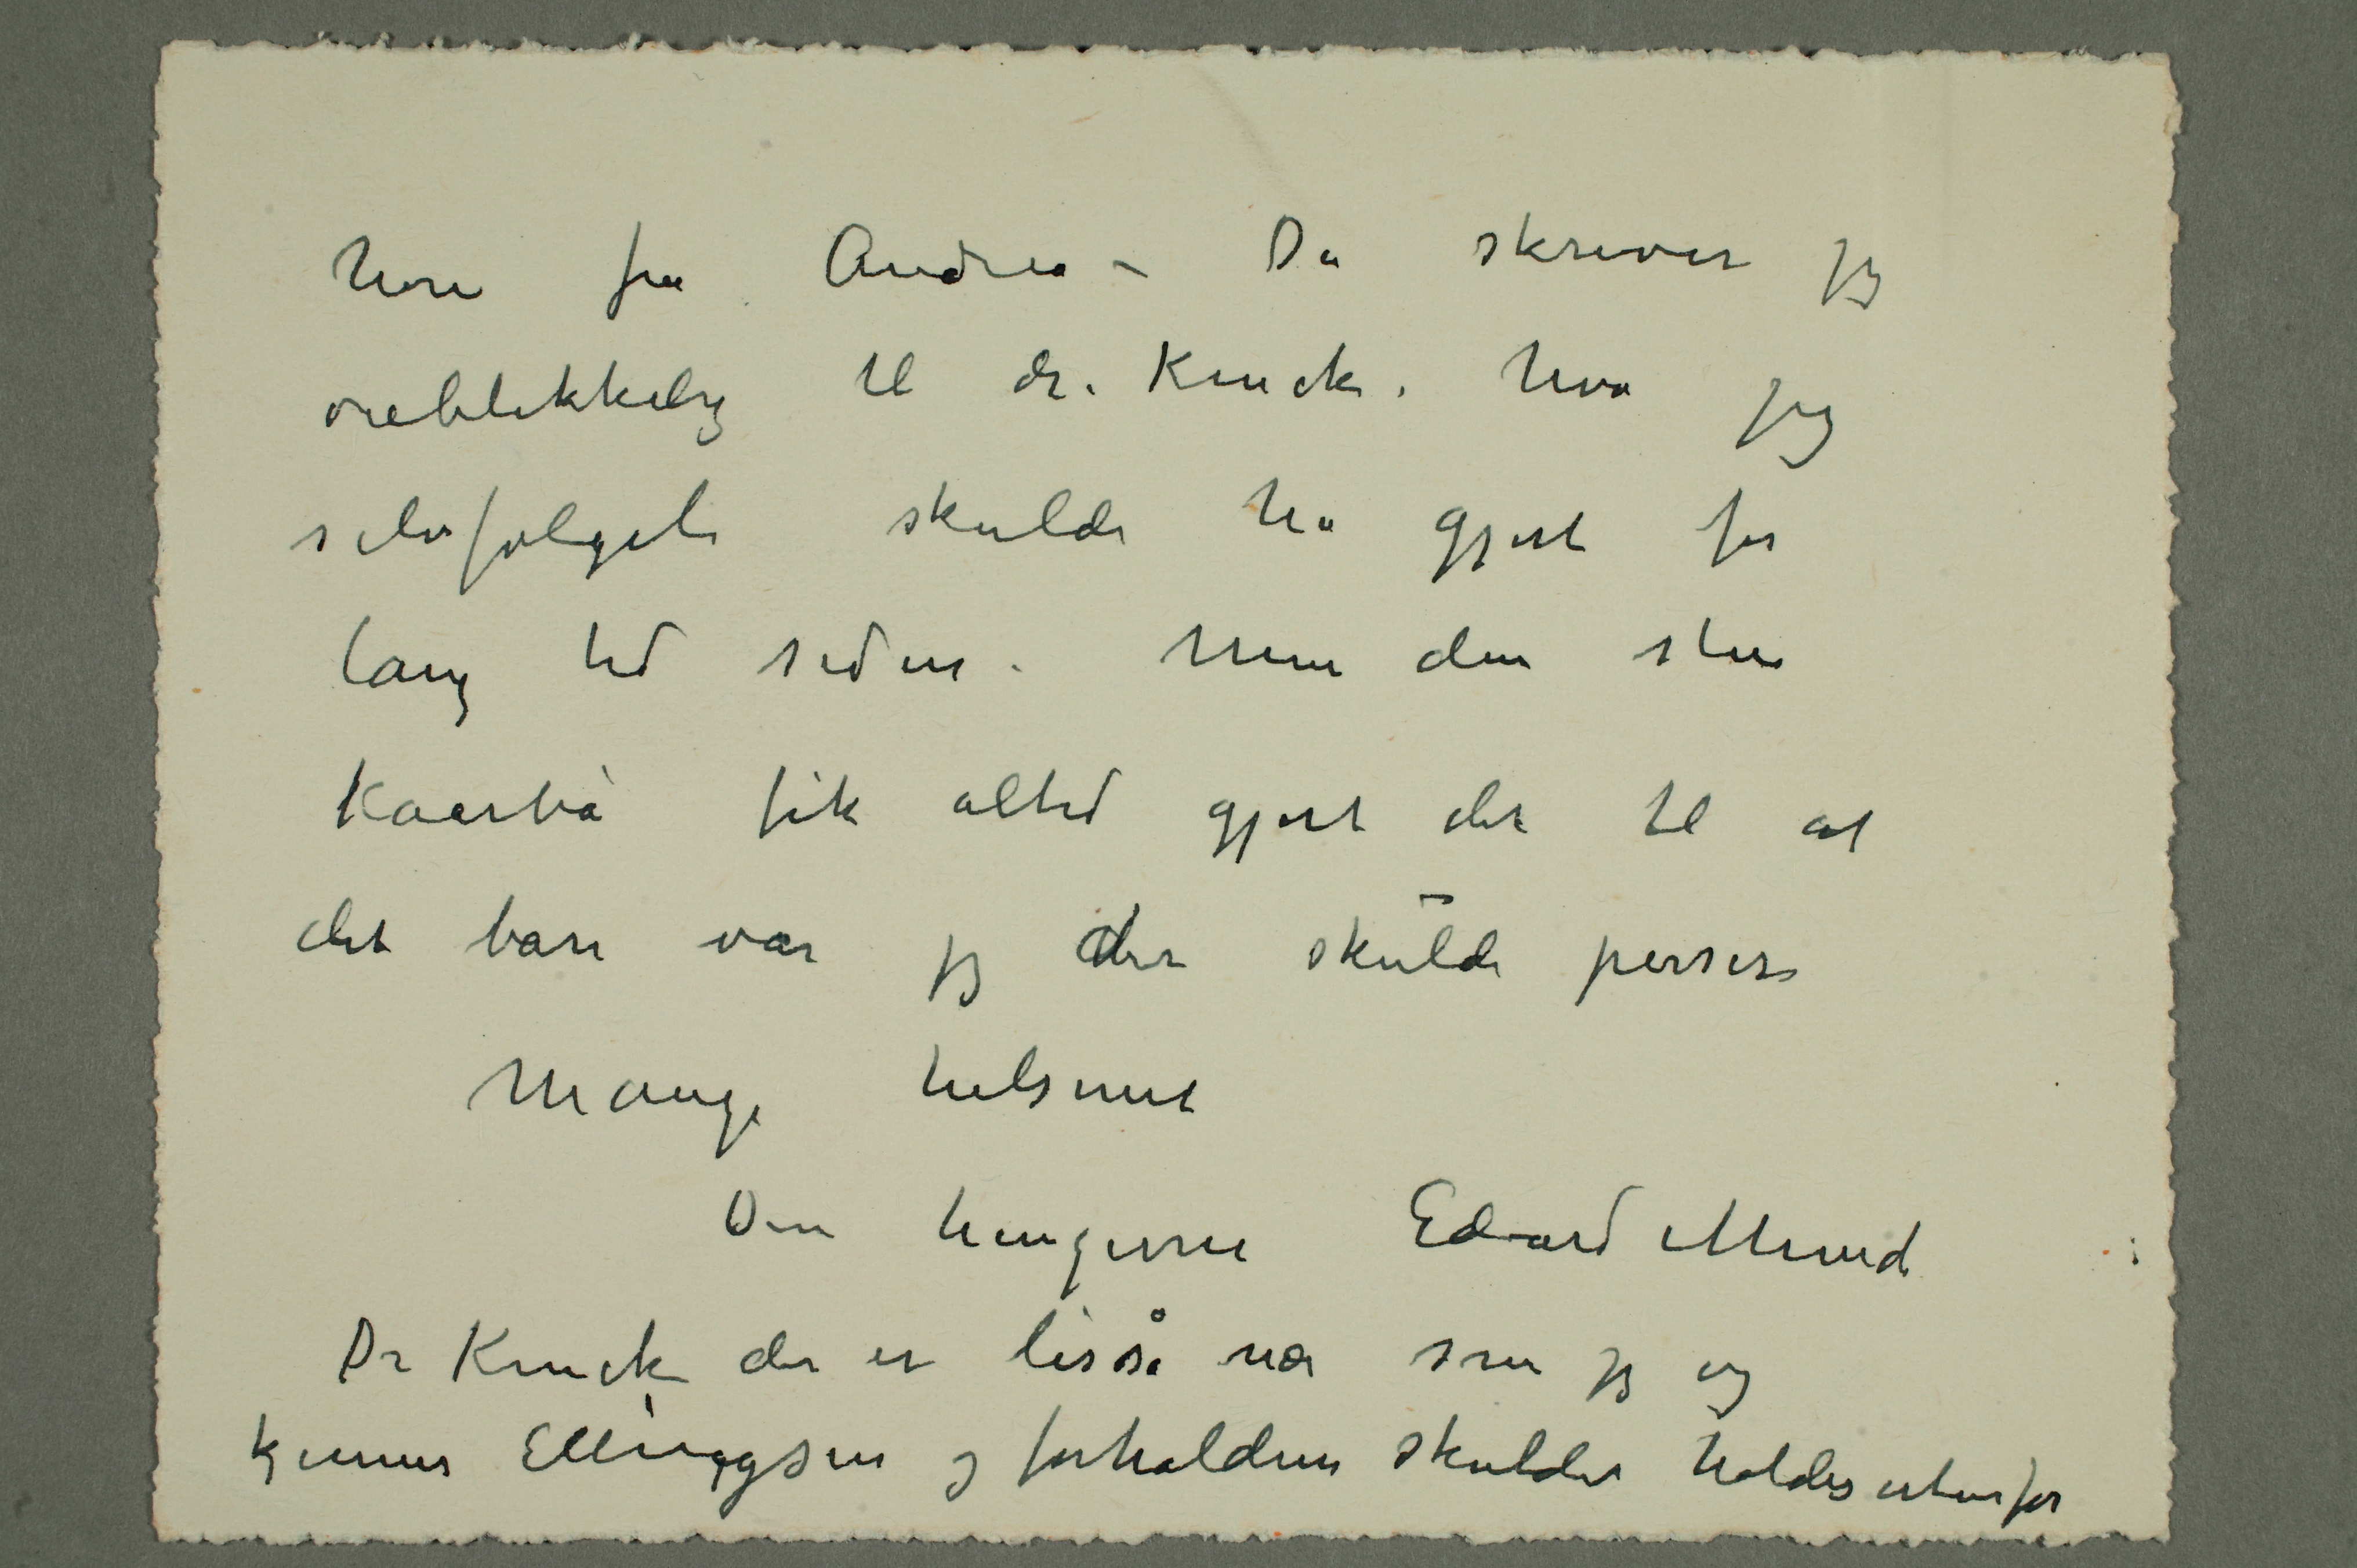 høre fra Andrea – Da skriver jeg
øieblikkelig til dr. Kinck. hva jeg
selvfølgeli skulde ha gjort for
lang tid siden. Men den
Kaarbø fik altid gjort det til at
det bare var jeg der skulde perses
Mange helsener
Din hengivne Edvard Munch
Dr Kinck der er lisså nær som jeg og
kjenner Ellinggsen og forholdene skulde holdes utenfor